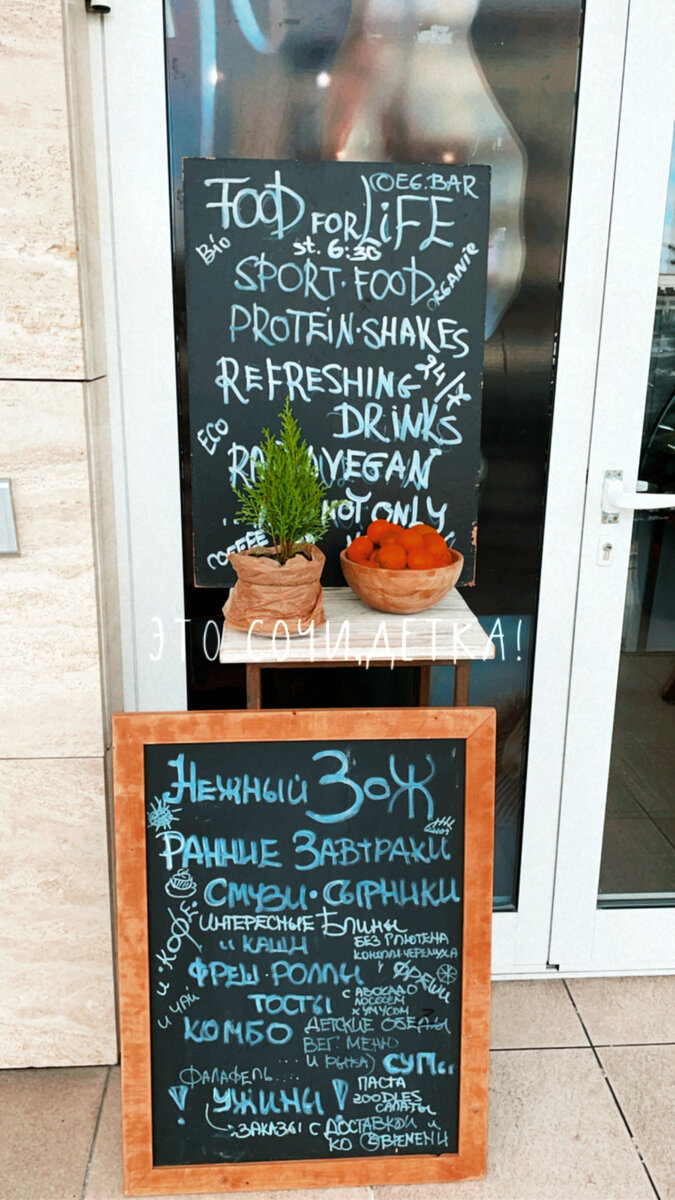 FOOD FOR LIFE
EG.BAR
st. 6:30
BIO
SPORT·FOOD
ORGANIC
PROTEIN·SHAKES
REFRESHING
24/7
DRINKS
ECO
VEGAN
NOT ONLY
COFFEE
ЭТО СОЧИ,ДЕТКА!
НЕЖНЫЙ ЗОЖ
РАННИЕ ЗАВТРАКИ
СМУЗИ·СЫРНИКИ
ИНТЕРЕСНЫЕ БЛИНЫ
И КАШИ
БЕЗ ГЛЮТЕНА
И·КОФЕ·
И ЧАЙ
ФРЕШ·РОЛЛЫ
ФРЕШИ
ТОСТЫ
С АВОКАДО
ЛОСОСЕМ
ХУМУСОМ
КОМБО
ДЕТСКИЕ ОБЕДЫ
ВЕГ. МЕНЮ
СУПЫ
ФАЛАФЕЛЬ....
! УЖИНЫ !
ПАСТА
ZOODLES
САЛАТЫ
ЗАКАЗЫ С ДОСТАВКОЙ И
КО ВРЕМЕНИ